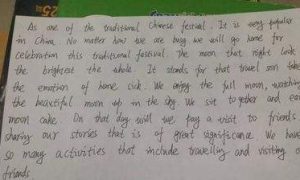 As one of the traditional Chinese festival. It is very popular
in China. No matter how we are busy we will go home for
celebration this traditional festival. The moon that night look
the brightest the whole. It stands for that travel son take
the emotion of home sick. We enjoy the full moon, watching
the beautiful moon up in the sky. We sit together and eat
moon cake. On that day we pay a visit to friends
sharing our stories that is of great significance. We have
so many activities that include travelling and visiting
friends